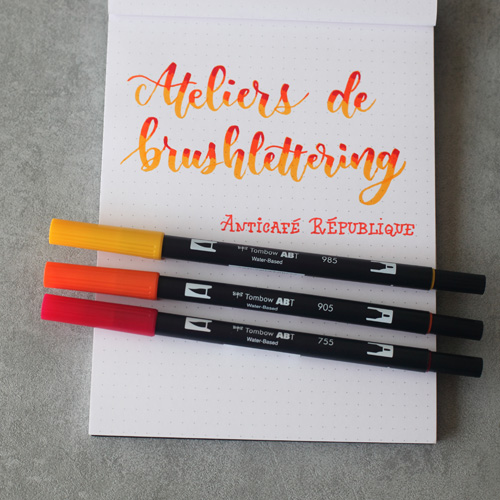 Ateliers de
brushlettering
ANTICAFÉ RÉPUBLIQUE
Tombow ABT 985
Water-Based
Tombow ABT 905
Water-Based
Tombow ABT 755
Water-Based